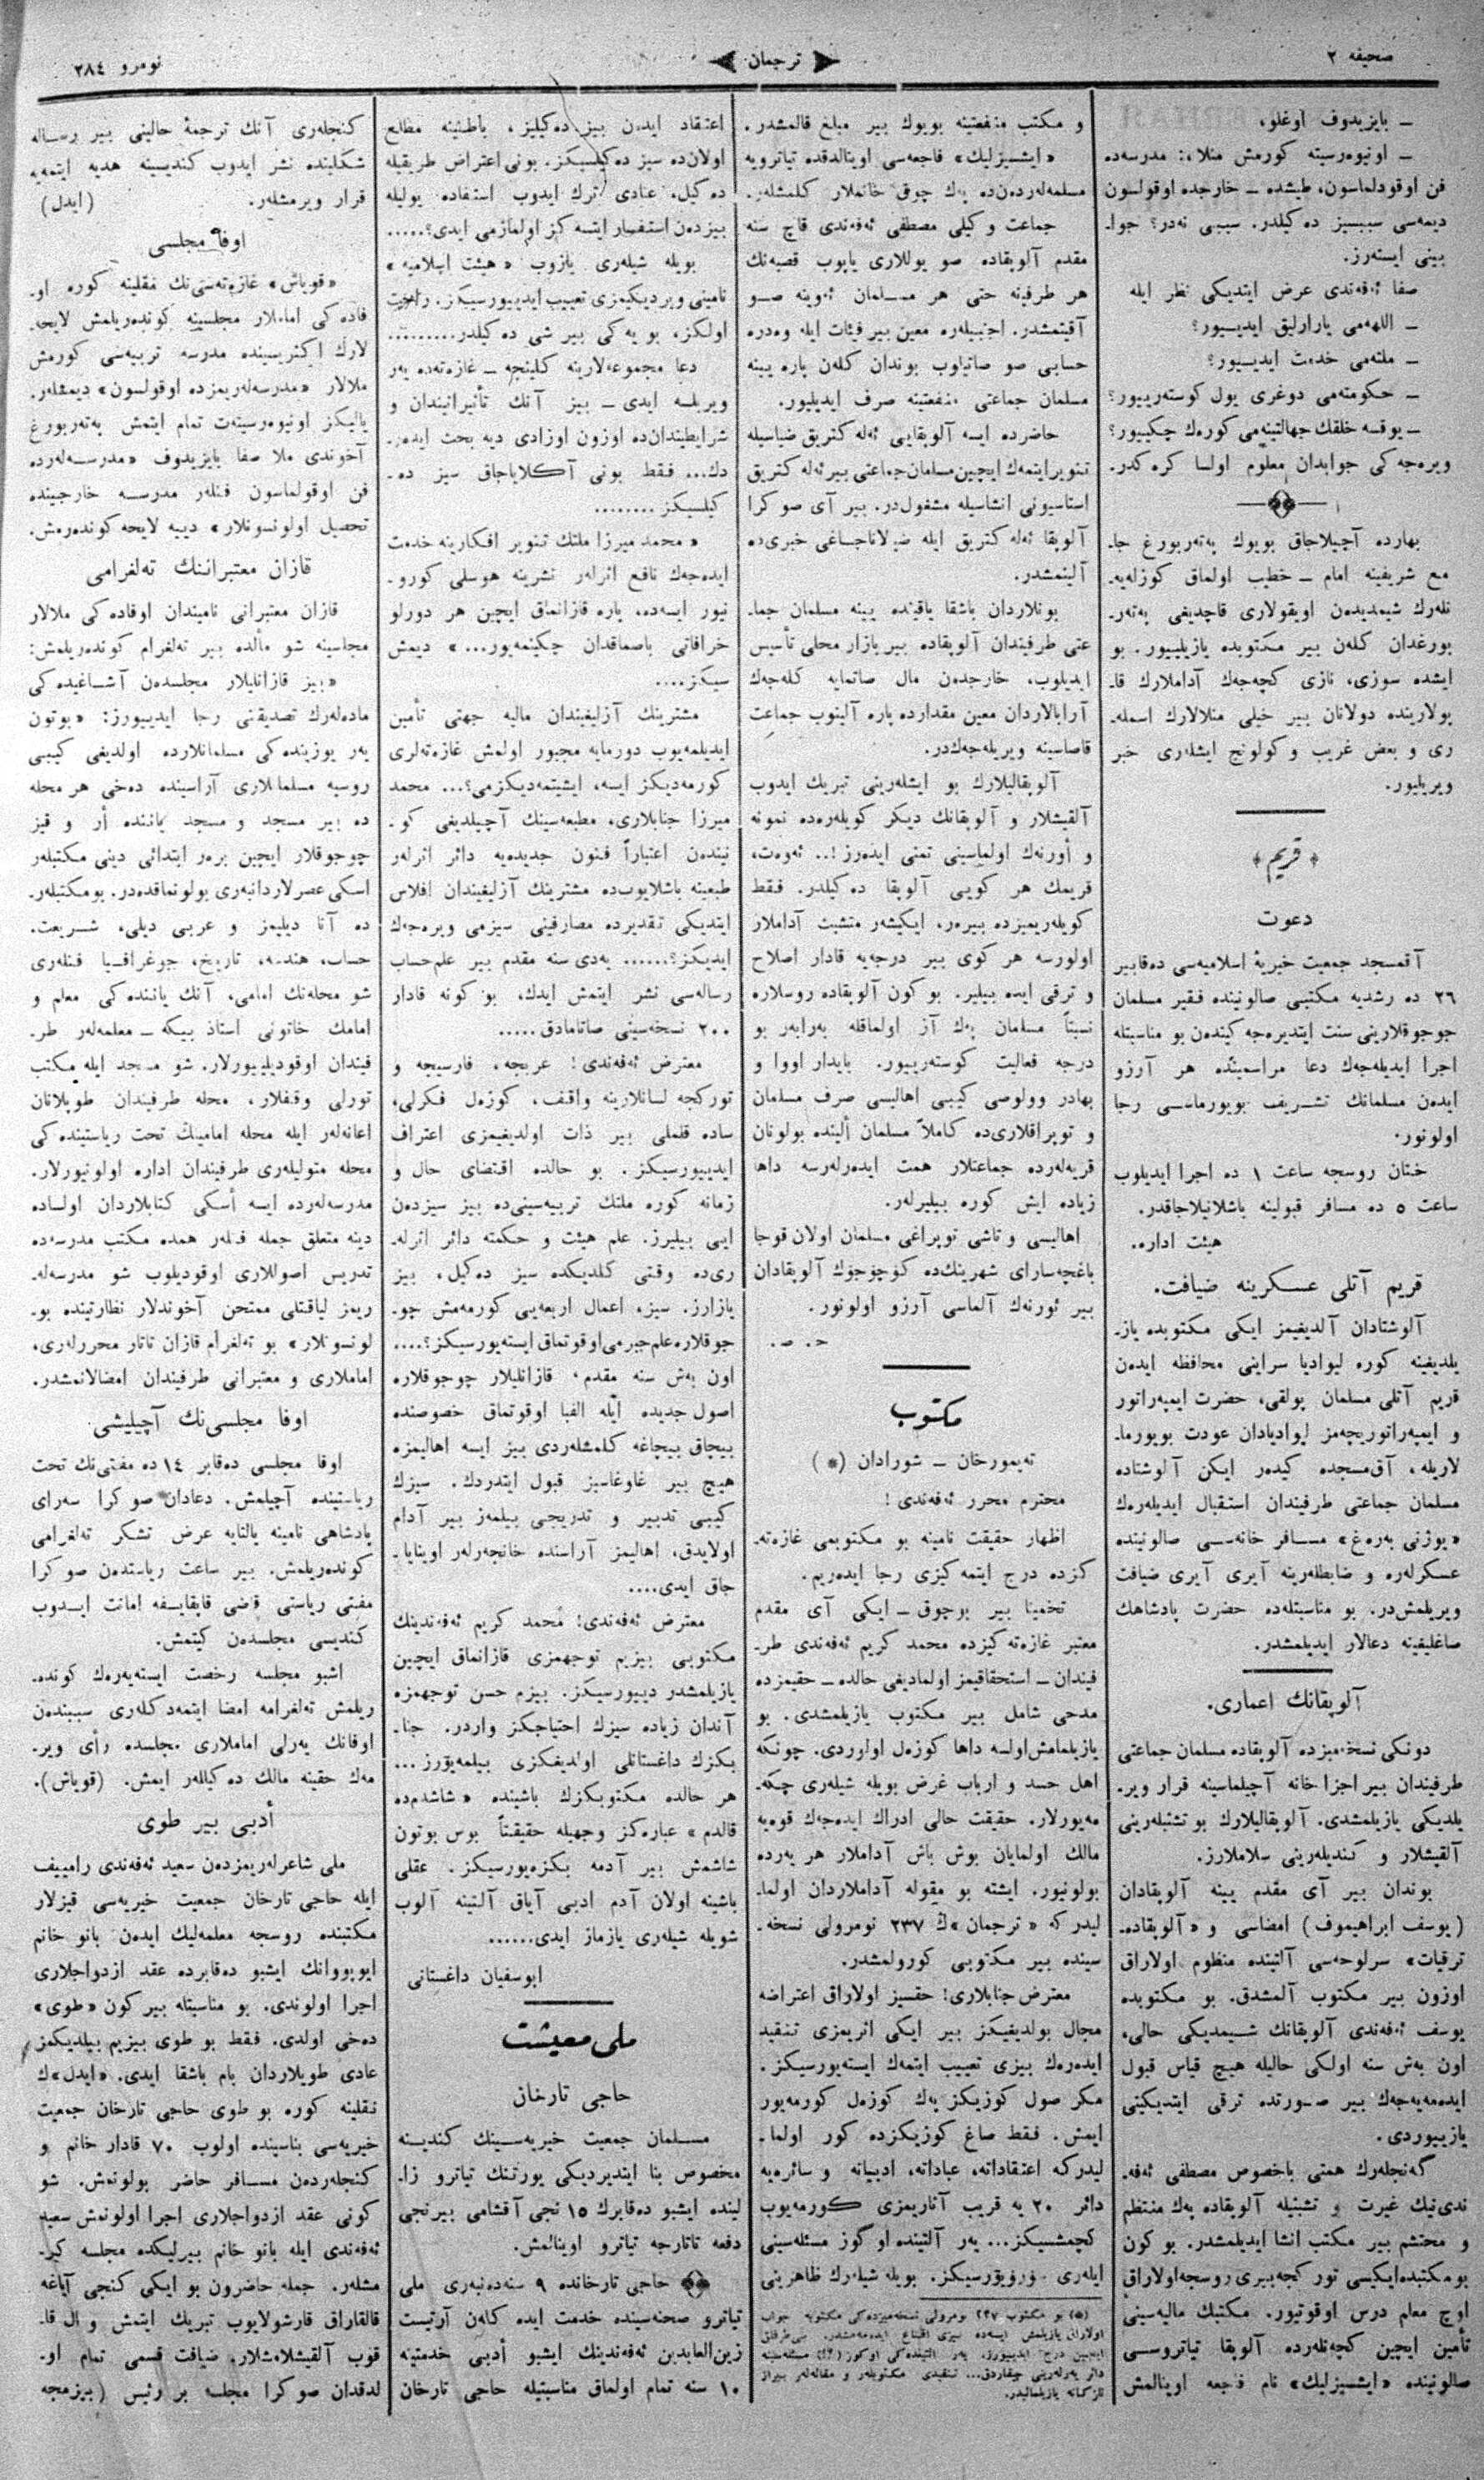 صحیفه ٢
ترجمان
نومرو ٢٨٤
ـ بایزیدوف اوغلو،
ـ اونیوه‌رسیته کورمش منلا،: مدرسه‌ده
فن اوقودلماسون، طیشده ـ خارجده اوقولسون
دیمه‌سی سببسیز ده‌کیلدر. سببی نه‌در؟ جوا‌ـ
بینی ایسته‌رز.
صفا ئه‌فه‌ندی عرض ایتدیکی نظر ایله
ـ اللهه‌می یارارلیق ایدییور؟
ـ ملته‌می خدمت ایدییور؟
ـ حکومته‌می دوغری یول کوسته‌رییور؟
ـ یوقسه خلقك جهالتینه‌می کوره‌ك چکییور؟
ویره‌جه‌کی جوابدان معلوم اولسا کره‌کدر.
بهارده آچیلاجاق بویوك په‌ته‌ربورغ جا‌ـ
مع شریفینه امام ـ خطیب اولماق کوزله‌یه‌ـ
نله‌رك شیمدیدن اویقولاری قاچدیغی په‌ته‌ر‌ـ
بورغدان کلن بیر مکتوبده یازیلییور. بو
ایشده سوزی، نازی کچه‌جه‌ك آداملارك قا‌ـ
پولارینده دولانان بیر خیلی منلالارك اسمله‌ـ
ری و بعض غریب و کولونج ایشله‌ری خبر
ویریلیور.
﴿ قریم ﴾
دعوت
آقمسجد جمعیت خیریهٔ اسلامیه‌سی ده‌قابیر
٢٦ ده رشدیه مکتبی صالونینده فقیر مسلمان
جوجوقلارینی سنت ایتدیره‌جه‌کیندن بو مناسبتله
اجرا ایدیله‌جه‌ك دعا مراسمینده هر آرزو
ایدن مسلمانك تشریف بویورماسی رجا
اولونور.
ختان روسجه ساعت ١ ده اجرا ایدیلوب
ساعت ٥ ده مسافر قبولینه باشلانیلاجاقدر.
هیئت اداره.
قریم آتلی عسکرینه ضیافت.
آلوشتادان آلدیغیمز ایکی مکتوبده یاز‌ـ
یلدیغینه کوره لیوادیا سراینی محافظه ایدن
قریم آتلی مسلمان پولقی، حضرت ایمپه‌راتور
و ایمپه‌راتوریچه‌مز لیوادیادان عودت بویورما‌ـ
لاریله، آق‌مسجده کیدر ایکن آلوشتاده
مسلمان جماعتی طرفیندان استقبال ایدیله‌ره‌ك
«یوژنی به‌ره‌غ» مسافر خانه‌سی صالونینده
عسکرله‌ره و ضابطله‌رینه آیری آیری ضیافت
ویریلمش‌در. بو مناسبتله‌ده حضرت پادشاهك
صاغلیغینه دعالار ایدیلمشدر.
آلوپقانك اعماری.
دونکی نسخه‌میزده آلوپقاده مسلمان جماعتی
طرفیندان بیر اجزا خانه آچیلماسینه قرار ویر‌ـ
یلدیکی یازیلمشدی. آلوپقالیلارك بو تشبثله‌رینی
آلقیشلار و کندیله‌رینی سلاملارز.
بوندان بیر آی مقدم یینه آلوپقادان
(یوسف ابراهیموف) امضاسی و «آلوپقاده‌ـ
ترقیات» سرلوحه‌سی آلتینده منظوم اولاراق
اوزون بیر مکتوب آلمشدق. بو مکتوبده
یوسف ئه‌فه‌ندی آلوپقانك شیمدیکی حالی،
اون به‌ش سنه اولکی حالیله هیچ قیاس قبول
ایده‌مه‌یه‌جه‌ك بیر صورتده ترقی ایتدیکینی
یازییوردی.
گه‌نجله‌رك همتی باخصوص مصطفی ئه‌فه‌ـ
ندی‌نیك غیرت و تشبثیله آلوپقاده په‌ك منتظم
و محتشم بیر مکتب انشا ایدیلمشدر. بو کون
بو مکتبده ایکیسی تورکجه بیری روسجه اولاراق
اوچ معلم درس اوقوتیور. مکتبك مالیه‌سینی
تأمین ایچین کچه‌نله‌رده آلوپقا تیاتروسی
صالونینده «ایشسیزلیك» نام فاجعه اوینالمش
و مکتب منفعتینه بویوك بیر مبلغ قالمشدر.
«ایشسیزلیك» فاجعه‌سی اوینالدقده تیاترویه
مسلمه‌له‌ردن‌ده په‌ك چوق خانملار کلمشله‌ر.
جماعت وکیلی مصطفی ئه‌فه‌ندی قاچ سنه
مقدم آلوپقاده صو یوللاری یاپوب قصبه‌نك
هر طرفینه حتی هر مسلمان ئه‌وینه صو
آقیتمشدر. اجنبیله‌ره معین بیر فیئات ایله وه‌دره
حسابی صو صاتیلوب بوندان کله‌ن پاره یینه
مسلمان جماعتی منفعتینه صرف ایدیلیور.
حاضرده ایسه آلوپقایی ئه‌له‌کتریق ضیاسیله
تنویر ایتمه‌ك ایچین مسلمان جماعتی بیر ئه‌له‌کتریق
استاسیونی انشاسیله مشغول‌در. بیر آی صوکرا
آلوپقا ئه‌له‌کتریق ایله ضیالاناجاغی خبری‌ده
آلینمشدر.
بونلاردان باشقا یاقینده یینه مسلمان جما‌ـ
عتی طرفیندان آلوپقاده بیر بازار محلی تأسیس
ایدیلوب، خارجدن مال صاتمایه کله‌جه‌ك
آرابالاردان معین مقدارده پاره آلینوب جماعت
قاصاسینه ویریله‌جه‌ك‌در.
آلوپقالیلارك بو ایشله‌رینی تبریك ایدوب
آلقیشلار و آلوپقانك دیکر کویله‌ره‌ده نمونه
و أورنه‌ك اولماسینی تمنی ایده‌رز!.. ئه‌وه‌ت،
قریمك هر کویی آلوپقا ده‌کیلدر. فقط
کویله‌ریمیزده بیره‌ر، ایکیشه‌ر متشبث آداملار
اولورسه هر کوی بیر درجه‌یه قادار اصلاح
و ترقی ایده بیلیر. بو کون آلوپقاده روسلاره
نسبتاً مسلمان په‌ك آز اولماقله به‌رابه‌ر بو
درجه فعالیت کوسته‌رییور. بایدار اووا و
بهادر وولوصی کیبی اهالیسی صرف مسلمان
و توپراقلاری‌ده کاملاً مسلمان ألینده بولونان
قریه‌له‌رده جماعتلار همت ایده‌رله‌رسه داها
زیاده ایش کوره بیلیرله‌ر.
اهالیسی و تاشی توپراغی مسلمان اولان قوجا
باغچه‌سارای شهرینك‌ده کوچوجوك آلوپقادان
بیر ئورنه‌ك آلماسی آرزو اولونور.
ح. ص.
مکتوب
ته‌یمورخان ـ شورادان (*)
محترم محرر ئه‌فه‌ندی!
اظهار حقیقت نامینه بو مکتوبمی غازه‌ته‌ـ
کزده درج ایتمه‌کیزی رجا ایده‌ریم.
تخمینا بیر بوچوق ـ ایکی آی مقدم
معتبر غازه‌ته‌کیزده محمد کریم ئه‌فه‌ندی طر‌ـ
فیندان ـ استحقاقیمز اولمادیغی حالده ـ حقیمزده
مدحی شامل بیر مکتوب یازیلمشدی. بو
یازیلمامش اولسه داها کوزه‌ل اولوردی. چونکه
اهل حسد و ارباب غرض بویله شیله‌ری چکه‌ـ
مه‌یورلار. حقیقت حالی ادراك ایده‌جه‌ك قوه‌یه
مالك اولمایان بوش باش آداملار هر یه‌رده
بولونیور. ایشته بو مقوله آداملاردان اولما‌ـ
لیدر که «ترجمان»ك ٢٣٧ نومرولی نسخه‌ـ
سینده بیر مکتوبی کورولمشدر.
معترض جنابلاری! حقسیز اولاراق اعتراضه
مجال بولدیغیکز بیر ایکی اثریمزی تنقید
ایده‌ره‌ك بیزی تعییب ایتمه‌ك ایسته‌یورسیکز.
مکر صول کوزیکز په‌ك کوزه‌ل کورمه‌یور
ایمش. فقط صاغ کوزیکزده کور اولما‌ـ
لیدرکه اعتقاداته، عباداته، ادبیاته و سائره‌یه
دائر ٢٠ یه قریب آثاریمزی کورمه‌یوب
کچمشسیکز... یه‌ر آلتینده اوگوز مسئله‌سینی
ایله‌ری سورویورسیکز. بویله شیله‌رك ظاهرینی
(*) بو مکتوب ٢٣٧ نومرولی نسخه‌میزده‌کی مکتوبه جواب
اولاراق یازیلمش ایسه‌ده سیزی اقناع ایده‌مه‌مشدر. بی‌طرفلق
ایچین درج ایدییورز. یه‌ر آلتینده‌کی اوکوز (!؟) مسئله‌سینه
دائر یه‌رله‌رینی چیقاردق... تنقیدی مکتوبله‌ر و مقاله‌له‌ر بیراز
نازکانه یازیلمالیدر.
اعتقاد ایدن بیز ده‌کیلیز، باطنینه مطلع
اولان‌ده سیز ده‌کیلسیکز. بونی اعتراض طریقیله
ده‌کیل، عنادی ترك ایدوب استفاده یولیله
بیزدن استفسار ایتسه‌کز اولمازمی ایدی؟.....
بویله شیله‌ری یازوب «هیئت اسلامیه»
نامینی ویردیکیمزی تعییب ایدییورسیکز. راحت
اولکز، بو یه‌کی بیر شی ده‌کیلدر.........
دعا مجموعه‌لارینه کلینجه ـ غازه‌ته‌ده یه‌ر
ویریلسه ایدی ـ بیز آنك تأثیراتیندان و
شرایطیندان‌ده اوزون اوزادی دیه بحث ایدر‌ـ
دك... فقط بونی آکلایاجاق سیز ده‌ـ
کیلسیکز........
«محمد میرزا ملتك تنویر افکارینه خدمت
ایده‌جه‌ك نافع اثرله‌ر نشرینه هوسلی کورو‌ـ
نیور ایسه‌ده، پاره قازانماق ایچین هر دورلو
خرافاتی باصماقدان چکینمه‌یور...» دیمش
سیکز....
مشترینك آزلیغیندان مالیه جهتی تأمین
ایدیلمه‌یوب دورمایه مجبور اولمش غازه‌ته‌لری
کورمه‌دیکز ایسه، ایشیتمه‌دیکزمی؟... محمد
میرزا جنابلاری، مطبعه‌سینك آچیلدیغی کو‌ـ
نیندن اعتباراً فنون جدیده‌یه دائر اثرله‌ر
طبعینه باشلایوب‌ده مشترینك آزلیغیندان افلاس
ایتدیکی تقدیرده مصارفینی سیزمی ویره‌جه‌ك
ایدیکز؟...... یه‌دی سنه مقدم بیر علم حساب
رساله‌سی نشر ایتمش ایدك، بو کونه قادار
٢٠٠ نسخه‌سینی صاتامادق.....
معترض ئه‌فه‌ندی! عربجه، فارسیجه و
تورکجه لسانلارینه واقف، کوزه‌ل فکرلی،
ساده قلملی بیر ذات اولدیغیمزی اعتراف
ایدییورسیکز. بو حالده اقتضای حال و
زمانه کوره ملتك تربیه‌سینی‌ده بیز سیزدن
ایی بیلیرز. علم هیئت و حکمته دائر اثرله‌ـ
ری‌ده وقتی کلدیکده سیز ده‌کیل، بیز
یازارز. سیز، اعمال اربعه‌یی کورمه‌مش چو‌ـ
جوقلاره علم جبرمی اوقوتماق ایسته‌یورسیکز؟....
اون به‌ش سنه مقدم، قازانلیلار چوجوقلاره
اصول جدیده ایله الفبا اوقوتماق خصوصنده
بیچاق بیچاغه کلمشله‌ردی بیز ایسه اهالیمزه
هیچ بیر غاوغاسیز قبول ایتدردك. سیزك
کیبی تدبیر و تدریجی بیلمه‌ز بیر آدام
اولایدق، اهالیمز آراسنده خانچه‌رله‌ر اوینایا‌ـ
جاق ایدی....
معترض ئه‌فه‌ندی! محمد کریم ئه‌فه‌ندینك
مکتوبی بیزیم توجهمزی قازانماق ایچین
یازیلمشدر دییورسیکز. بیزم حسن توجهمزه
آندان زیاده سیزك احتیاجکز واردر. جنا‌ـ
بکزك داغستانلی اولدیغکزی بیلمه‌یورز...
هر حالده مکتوبکزك باشینده «شاشدم‌ده
قالدم» عباره‌کز وجهیله حقیقتاً بوس بوتون
شاشمش بیر آدمه بکزه‌یورسیکز. عقلی
باشینه اولان آدم ادبی آیاق آلتینه آلوب
شویله شیله‌ری یازماز ایدی......
ابوسفیان داغستانی
ملی معیشت
حاجی تارخان
مسلمان جمعیت خیریه‌سینك کندینه
مخصوص بنا ایتدیردیکی یورتنك تیاترو زا‌ـ
لینده ایشبو ده‌قابرك ١٥ نجی آقشامی بیرنجی
دفعه تاتارجه تیاترو اوینالمش.
حاجی تارخانده ٩ سنه‌دنبه‌ری ملی
تیاترو صحنه‌سینده خدمت ایده کله‌ن آرتیست
زین‌العابدین ئه‌فه‌ندینك ایشبو أدبی خدمتینه
١٠ سنه تمام اولماق مناسبتیله حاجی تارخان
کنجله‌ری آنك ترجمهٔ حالینی بیر رساله
شکلینده نشر ایدوب کندیسینه هدیه ایتمه‌یه
قرار ویرمشله‌ر. (ایدل)
اوفا مجلسی
«قویاش» غازه‌ته‌سی‌نك نقلینه کوره او‌ـ
فاده‌کی اماملار مجلسینه کونده‌ریلمش لایحه‌ـ
لارك اکثریسینده مدرسه تربیه‌سی کورمش
ملالار «مدرسه‌له‌ریمزده اوقولسون» دیمشله‌ر.
یالیکز اونیوه‌رسیته‌ت تمام ایتمش په‌ته‌ربورغ
آخوندی ملا صفا بایزیدوف «مدرسه‌له‌رده
فن اوقولماسون فنله‌ر مدرسه خارجینده
تحصیل اولونسونلار» دییه لایحه کونده‌رمش.
قازان معتبرانینك ته‌لغرامی
قازان معتبرانی نامیندان اوفاده‌کی ملالار
مجلسینه شو مألده بیر ته‌لغرام کونده‌ریلمش:
«بیز قازانلیلار مجلسدن آشاغیده‌کی
ماده‌له‌رك تصدیقنی رجا ایدییورز: «بوتون
یه‌ر یوزینده‌کی مسلمانلارده اولدیغی کیبی
روسیه مسلمانلاری آراسینده ده‌خی هر محله
ده بیر مسجد و مسجد یاننده أر و قیز
چوجوقلار ایچین بره‌ر ابتدائی دینی مکتبله‌ر
اسکی عصرلاردانبه‌ری بولونماقده‌در. بو مکتبله‌ر‌ـ
ده آنا دیلیمز و عربی دیلی، شریعت،
حساب، هندسه، تاریخ، جوغرافیا فنله‌ری
شو محله‌نك امامی، آنك یاننده‌کی معلم و
امامك خاتونی استاذ بیکه ـ معلمه‌له‌ر طر‌ـ
فیندان اوقودیلییورلار. شو مسجد ایله مکتب
تورلی وقفلار، محله طرفیندان طوپلانان
اعانه‌له‌ر ایله محله امامینك تحت ریاستینده‌کی
محله متولیله‌ری طرفیندان اداره اولونیورلار.
مدرسه‌له‌رده ایسه أسکی کتابلاردان اولساده
دینه متعلق جمله فنله‌ر همده مکتب مدرسه‌ده
تدریس اصوللاری اوقودیلوب شو مدرسه‌له‌ـ
ریمز لیاقتلی ممتحن آخوندلار نظارتینده بو‌ـ
لونسونلار» بو ته‌لغرام قازان تاتار محررله‌ری،
اماملاری و معتبرانی طرفیندان امضالانمشدر.
اوفا مجلسی‌نك آچیلیشی
اوفا مجلسی ده‌قابر ١٤ ده مفتی‌نك تحت
ریاستینده آچیلمش. دعادان صوکرا سه‌رای
پادشاهی نامینه یالتایه عرض تشکر ته‌لغرامی
کونده‌ریلمش. بیر ساعت ریاستدن صوکرا
مفتی ریاستی قاضی قاپقایفه امانت ایدوب
کندیسی مجلسدن کیتمش.
اشبو مجلسه رخصت ایسته‌یه‌ره‌ك کونده‌ـ
ریلمش ته‌لغرامه امضا ایتمه‌دکله‌ری سببندن
اوفانك یه‌رلی اماملاری مجلسده رأی ویر‌ـ
مه‌ك حقینه مالك ده‌کیلله‌ر ایمش. (قویاش).
أدبی بیر طوی
ملی شاعرله‌ریمزدن سعید ئه‌فه‌ندی رامییف
ایله حاجی تارخان جمعیت خیریه‌سی قیزلار
مکتبنده روسجه معلمه‌لیك ایدن بانو خانم
ایوبووانك ایشبو ده‌قابرده عقد ازدواجلاری
اجرا اولوندی. بو مناسبتله بیر کون «طوی»
ده‌خی اولدی. فقط بو طوی بیزیم بیلدیکمز
عادی طویلاردان بام باشقا ایدی. «ایدل»ك
نقلینه کوره بو طوی حاجی تارخان جمعیت
خیریه‌سی بناسینده اولوب ٧٠ قادار خانم و
کنجله‌ردن مسافر حاضر بولونمش. شو
کونی عقد ازدواجلاری اجرا اولونمش سعید
ئه‌فه‌ندی ایله بانو خانم بیرلیکده مجلسه کیر‌ـ
مشله‌ر. جمله حاضرون بو ایکی کنجی آیاغه
قالقاراق قارشولایوب تبریك ایتمش و ال قا‌ـ
قوب آلقیشلامشلار. ضیافت قسمی تمام او‌ـ
لدقدان صوکرا مجلسه بر رئیس (بیزمجه